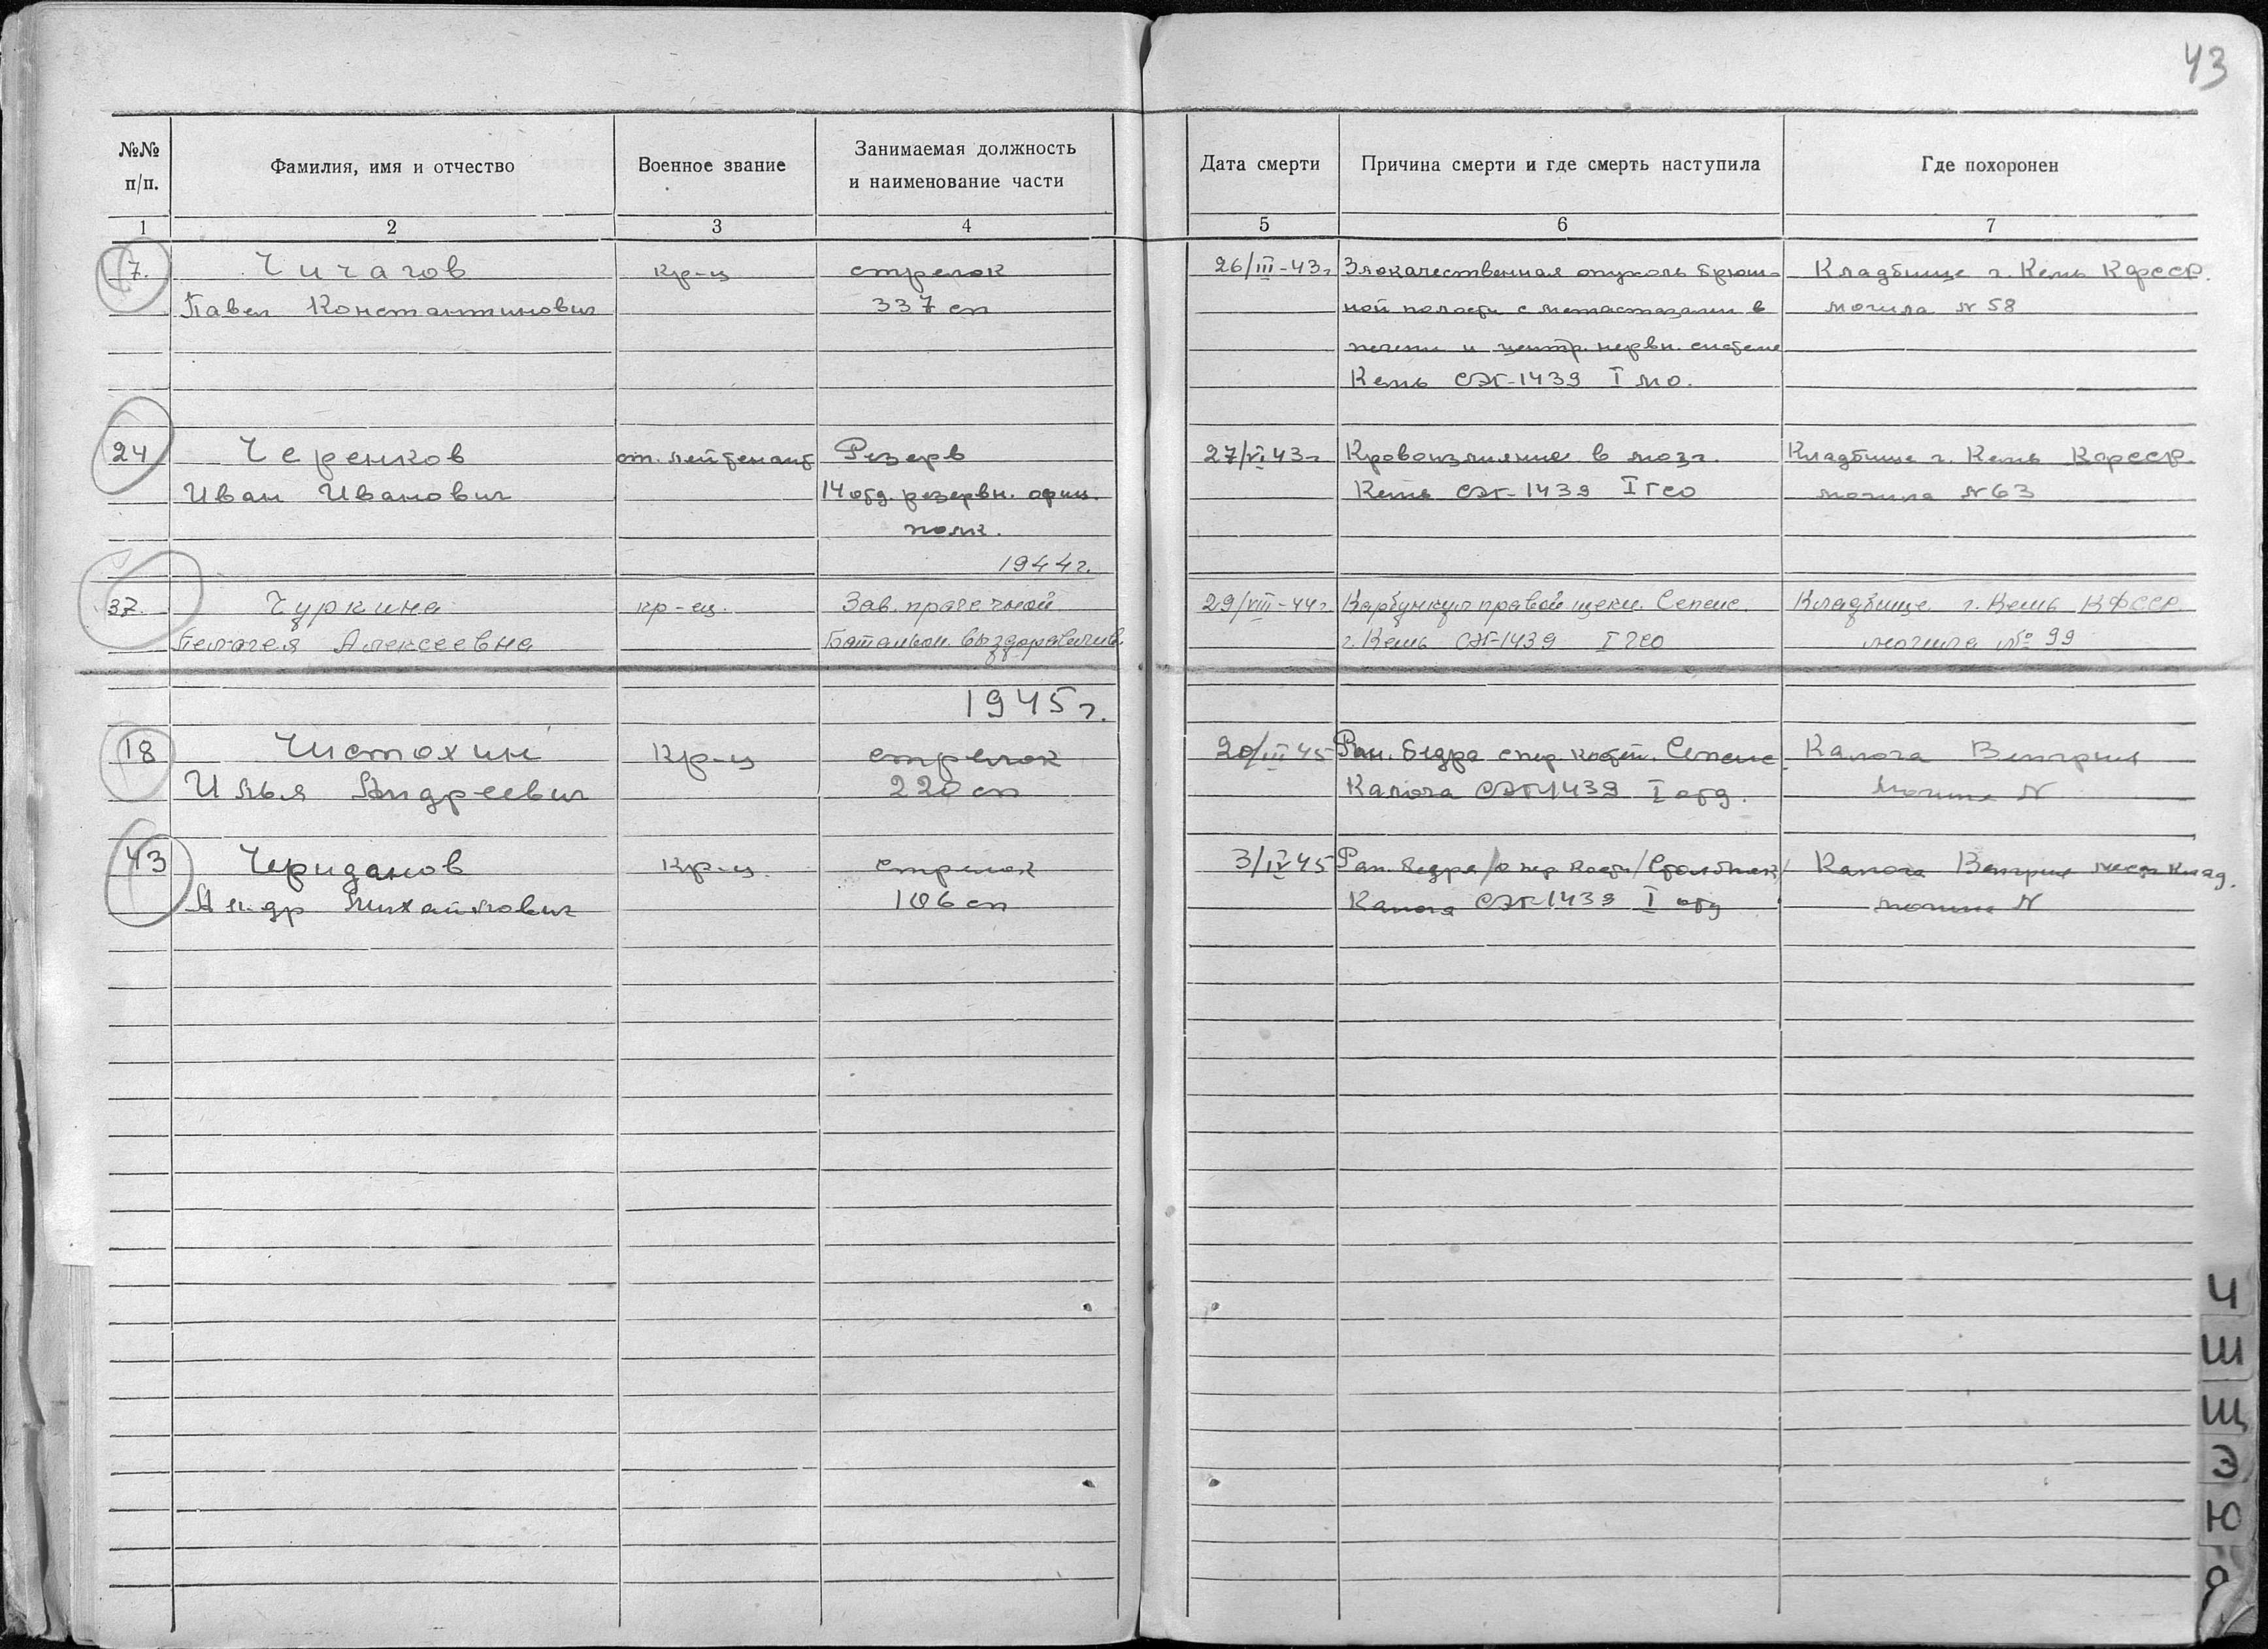 43
№№ п/п. Фамилия, имя и отчество Военное звание Занимаемая должность и наименование части Дата смерти Причина смерти и где смерть наступила Где похоронен
1 2 3 4 5 6 7
7. Чичагов кр-ц стрелок 26/III-43г Злокачественная опухоль брюш- Кладбище г. Кемь КФССР.
Павел Константинович 337 сп ной полости с метастазами в могила N 58
печени и центр. нервн. системе
Кемь СЭГ-1439 I мо.
24 Черенков ст. лейтенант Резерв 27/VI 43г Кровоизлияние в мозг. Кладбище г. Кемь КФССР.
Иван Иванович 14 отд. резервн. офиц. Кемь СЭГ-1439 I гсо могила N 63
полк.
1944г.
37. Чуркина кр-ец. Зав. прачечной 29/VIII-44г. Карбункул правой щеки. Сепсис. Кладбище г. Кемь КФССР
Пелагея Алексеевна Батальон. выздоравлив. г. Кемь СЭГ-1439 I гсо могила № 99
1945г.
18 Чистохин кр-ц стрелок 20/III 45 Ран. бедра с пер. кости. Сепсис. Калоча Венгрия
Илья Андреевич 220 сп Калоча СЭГ-1439 I отд. Могила N
43 Чериданов кр-ц. стрелок 3/IV 45 Ран. бедра /с пер. кости/ Столбняк/ Калоча Венгрия мест клад.
Ал-др Михайлович 106 сп Калоча СЭГ-1439 I отд могила N
Ч
Ш
Щ
Э
Ю